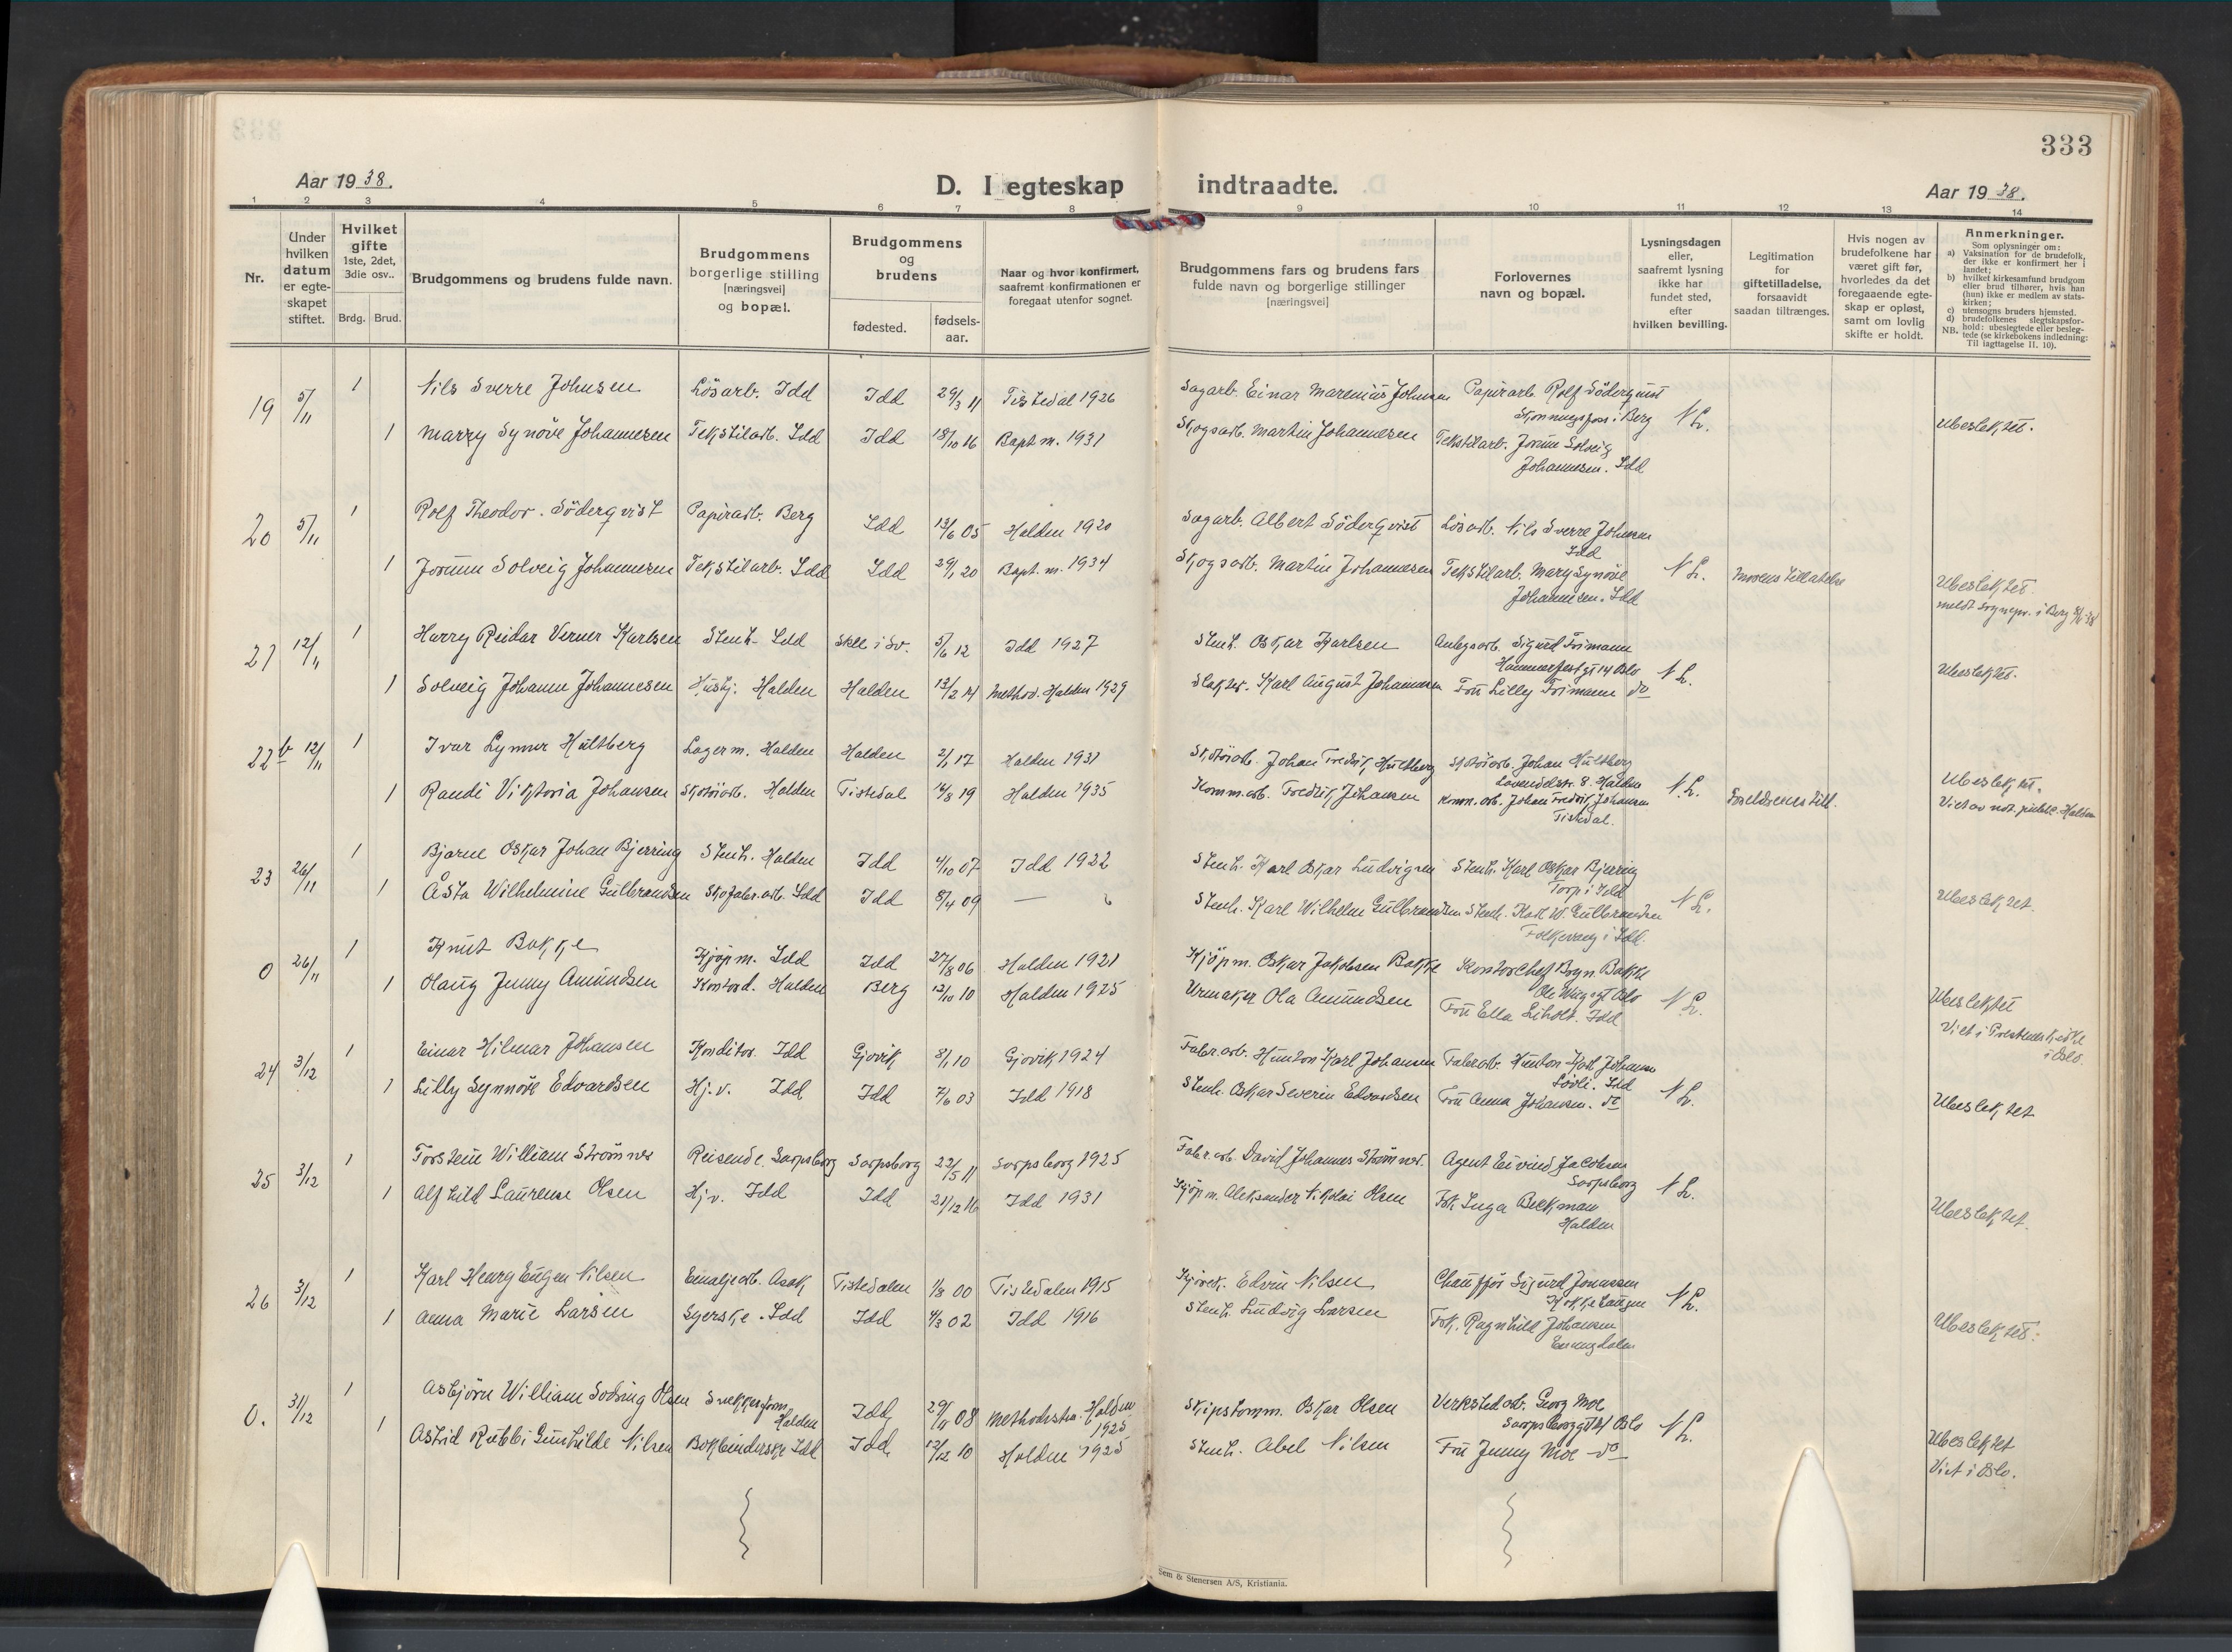 333
Aar 1938.
D. I egteskap indtraadte.
Aar 1938.
1 2 3 4 5 6 7 8 9 10 11 12 13 14
Nr.
Under hvilken datum er egteskapet stiftet.
Hvilket gifte 1ste, 2det, 3die osv..
Brdg. Brud.
Brudgommens og brudens fulde navn.
Brudgommens borgerlige stilling [næringsvei] og bopæl.
Brudgommens og brudens
fødested.
fødsels-aar.
Naar og hvor konfirmert, saafremt konfirmationen er foregaat utenfor sognet.
Brudgommens fars og brudens fars fulde navn og borgerlige stillinger [næringsvei]
Forlovernes navn og bopæl.
Lysningsdagen eller, saafremt lysning ikke har fundet sted, efter hvilken bevilling.
Legitimation for giftetilladelse, forsaavidt saadan tiltrænges.
Hvis nogen av brudefolkene har været gift før, hvorledes da det foregaaende egteskap er opløst, samt om lovlig skifte er holdt.
Anmerkninger.
Som oplysninger om:
a) Vaksination for de brudefolk, der ikke er konfirmert her i landet;
b) hvilket kirkesamfund brudgom eller brud tilhører, hvis han (hun) ikke er medlem av statskirken;
c) utensogns bruders hjemsted.
d) brudefolkenes slegtskapsforhold: ubeslegtede eller beslegtede (se kirkebokens indledning:
NB. Til iagttagelse II. 10).
19 5/11 1 Nils Sverre Johnsen Løsarb. Idd Idd 29/3 11 Tistedal 1926 Sagarb. Einar Marenius Johnsen Papirarb. Rolf Söderqvist
Skonningsfoss i Berg N L. Ubeslektet.
1 Marry Synöve Johannesen Tekstilarb. Idd Idd 18/10 16 Bapt. m. 1931 Skogsarb. Martin Johannesen Tekstilarb. Jorunn Solveig
Johannesen. Idd
20 5/11 1 Rolf Theodor. Söderqvist Papirarb. Berg Idd 13/6 05 Halden 1920 Sagarb. Albert Söderqvist Løsarb. Nils Sverre Johnsen
Idd
1 Jorunn Solveig Johannesen Tekstilarb. Idd Idd 29/1 20 Bapt. m. 1934 Skogsarb. Martin Johannesen Tekstilarb. Mary Synöve N L. Morens tillatelse Ubeslektet.
Johannesen. Idd meldt sognepr. i Berg
21 12/11 1 Harry Reidar Verner Karlsen Stenh. Idd Skee i Sv. 5/6 12 Idd 1927 Stenh. Oskar Karlsen Anlegsarb. Sigurd Frimann
Hammerfestgt 14 Oslo N L. Ubeslektet.
1 Solveig Johanne Johannesen Hushj. Halden Halden 13/2 14 Method. Halden 1929 Slakter. Karl August Johannesen Fru Lilly Frimann do
22b 12/11 1 Ivar Lynner Hultberg Lagerm. Halden Halden 2/1 17 Halden 1931 Skotöiarb. Johan Fredrik Hultberg Skotöiarb. Johan Hultberg
8. Halden N.L. Foreldrenes till. Ubeslektet.
1 Randi Viktoria Johansen Skotöiarb. Halden Tistedal 14/8 19 Halden 1935 Komm.arb. Fredrik Johansen Komm. arb. Johan Fredrik Johansen
Tistedal. Viet av not. public. Halden
23 26/11 1 Bjarne Oskar Johan Bjerring Stenh. Halden Idd 4/10 07 Idd 1922 Stenh. Karl Oskar Ludvigsen Stenh. Karl Oskar Bjerring
Torp i Idd
1 Åsta Wilhelmine Gulbrandsen Skofabr. arb. Idd Idd 8/4 09 — Stenh. Karl Wilhelm Gulbrandsen Stenh. Karl W. Gulbrandsen N L. Ubeslektet.
Folkevang i Idd.
0 26/11 1 Knut Bakke Kjöpm. Idd Idd 27/8 06 Halden 1921 Kjöpm. Oskar Jakobsen Bakke Kontorchef Bryn. Bakke
Oslo
1 Olaug Jenny Amundsen Kontord. Halden Berg 12/10 10 Halden 1925 Urmaker Ola Amundsen Fru Ella Liholt. Idd N L. Ubeslektet
Viet i
i Oslo.
24 3/12 1 Einar Hilmar Johansen Konditor. Idd Gjövik 8/1 10 Gjövik 1924 Fabr. arb. Hunton Karl Johansen Fabr.arb. Hunton Karl Johansen
Idd
1 Lilly Synnöve Edvardsen Hj. v. Idd Idd 7/6 03 Idd 1918 Stenh. Oskar Severin Edvardsen Fru Anna Johansen. do N L. Ubeslektet
25 3/12 1 Torstein William Strömnes Reisende. Sarpsborg Sarpsborg 22/5 11 Sarpsborg 1925 Fabr. arb. David Johannes Strömnes. Agent Eivind Jacobsen
Sarpsborg N L.
1 Alfhild Laurense Olsen Hj. v. Idd Idd 21/12 16 Idd 1931 Kjöpm. Aleksander Nikolai Olsen Frk Inga Beckman Ubeslektet.
Halden
26 3/12 1 Karl Henry Eugen Nilsen Emaljearb. Asak Tistedalen 1/8 00 Tistedalen 1915 Edvin Nilsen Chauffør Sigurd Jonassen
N L.
1 Anna Marie Larsen Syerske. Idd Idd 4/3 02 Idd 1916 Stenh. Ludvig Larsen Frk. Ragnhild Johansen Ubeslektet.
Enningdalen
0. 31/12 1 Asbjörn William Sodring Olsen
Halden Idd 29/11 08 Methodistm. Halden
1923 Skipstømm. Oskar Olsen Verkstedarb. Georg Moe
Sarpsborggt Oslo N L.
1 Astrid Rubbi Gunhilde Nilsen Bokbinderske Idd Idd 12/12 10 Halden 1925 Stenh. Abel Nilsen Fru Jenny Moe do Ubeslektet
Viet i Oslo.
Sem & Stenersen A/S, Kristiania.